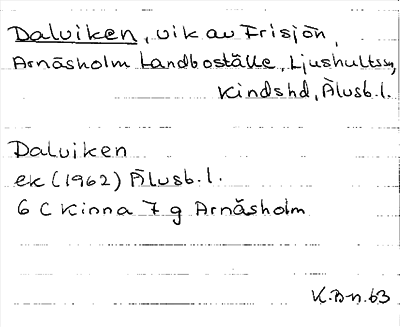 Dalviken, vik av Frisjön,
Arnäsholm Landboställe, Ljushults sn,
Kindshd, Älvsb.l.
Dalviken
ek (1962) Älvsb.l.
6 C Kinna 7 g Arnäsholm
K.B-n.63